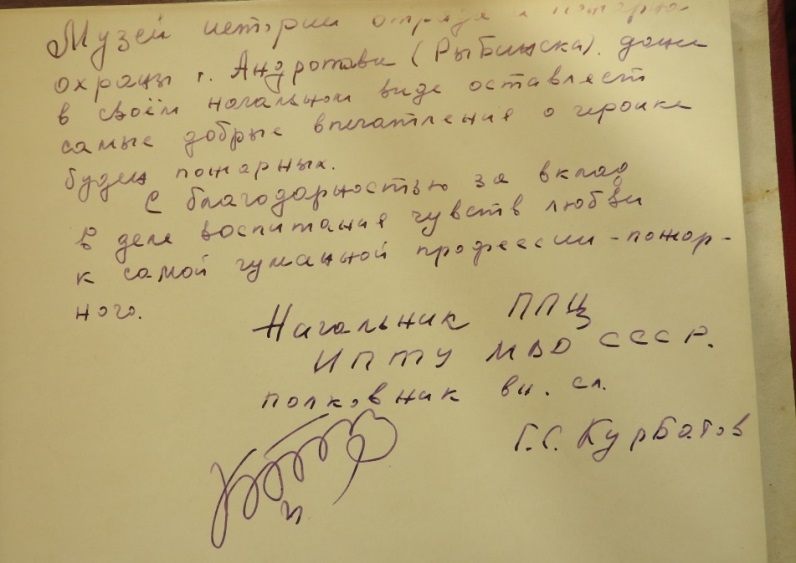 Музей истории отряда и пожарно
охраны г. Андропова (Рыбинска). даже
в своём начальном виде оставляет
самые добрые впечатления о героике
буден пожарных.
С благодарностью за вклад
в деле воспитания чувств любви
к самой гуманной профессии - пожар-
ного.
Начальник ППЦ
ИПТУ МВД СССР.
полковник вн. сл.
Г.С. Курбатов